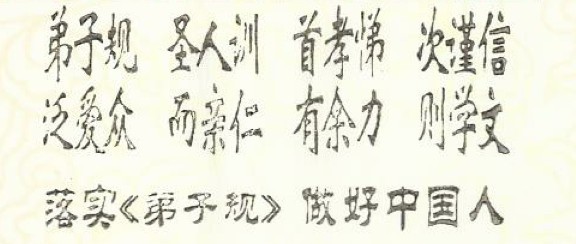 弟子规 圣人训 首孝悌 次谨信
泛爱众 而亲仁 有余力 则学文
落实《弟子规》做好中国人